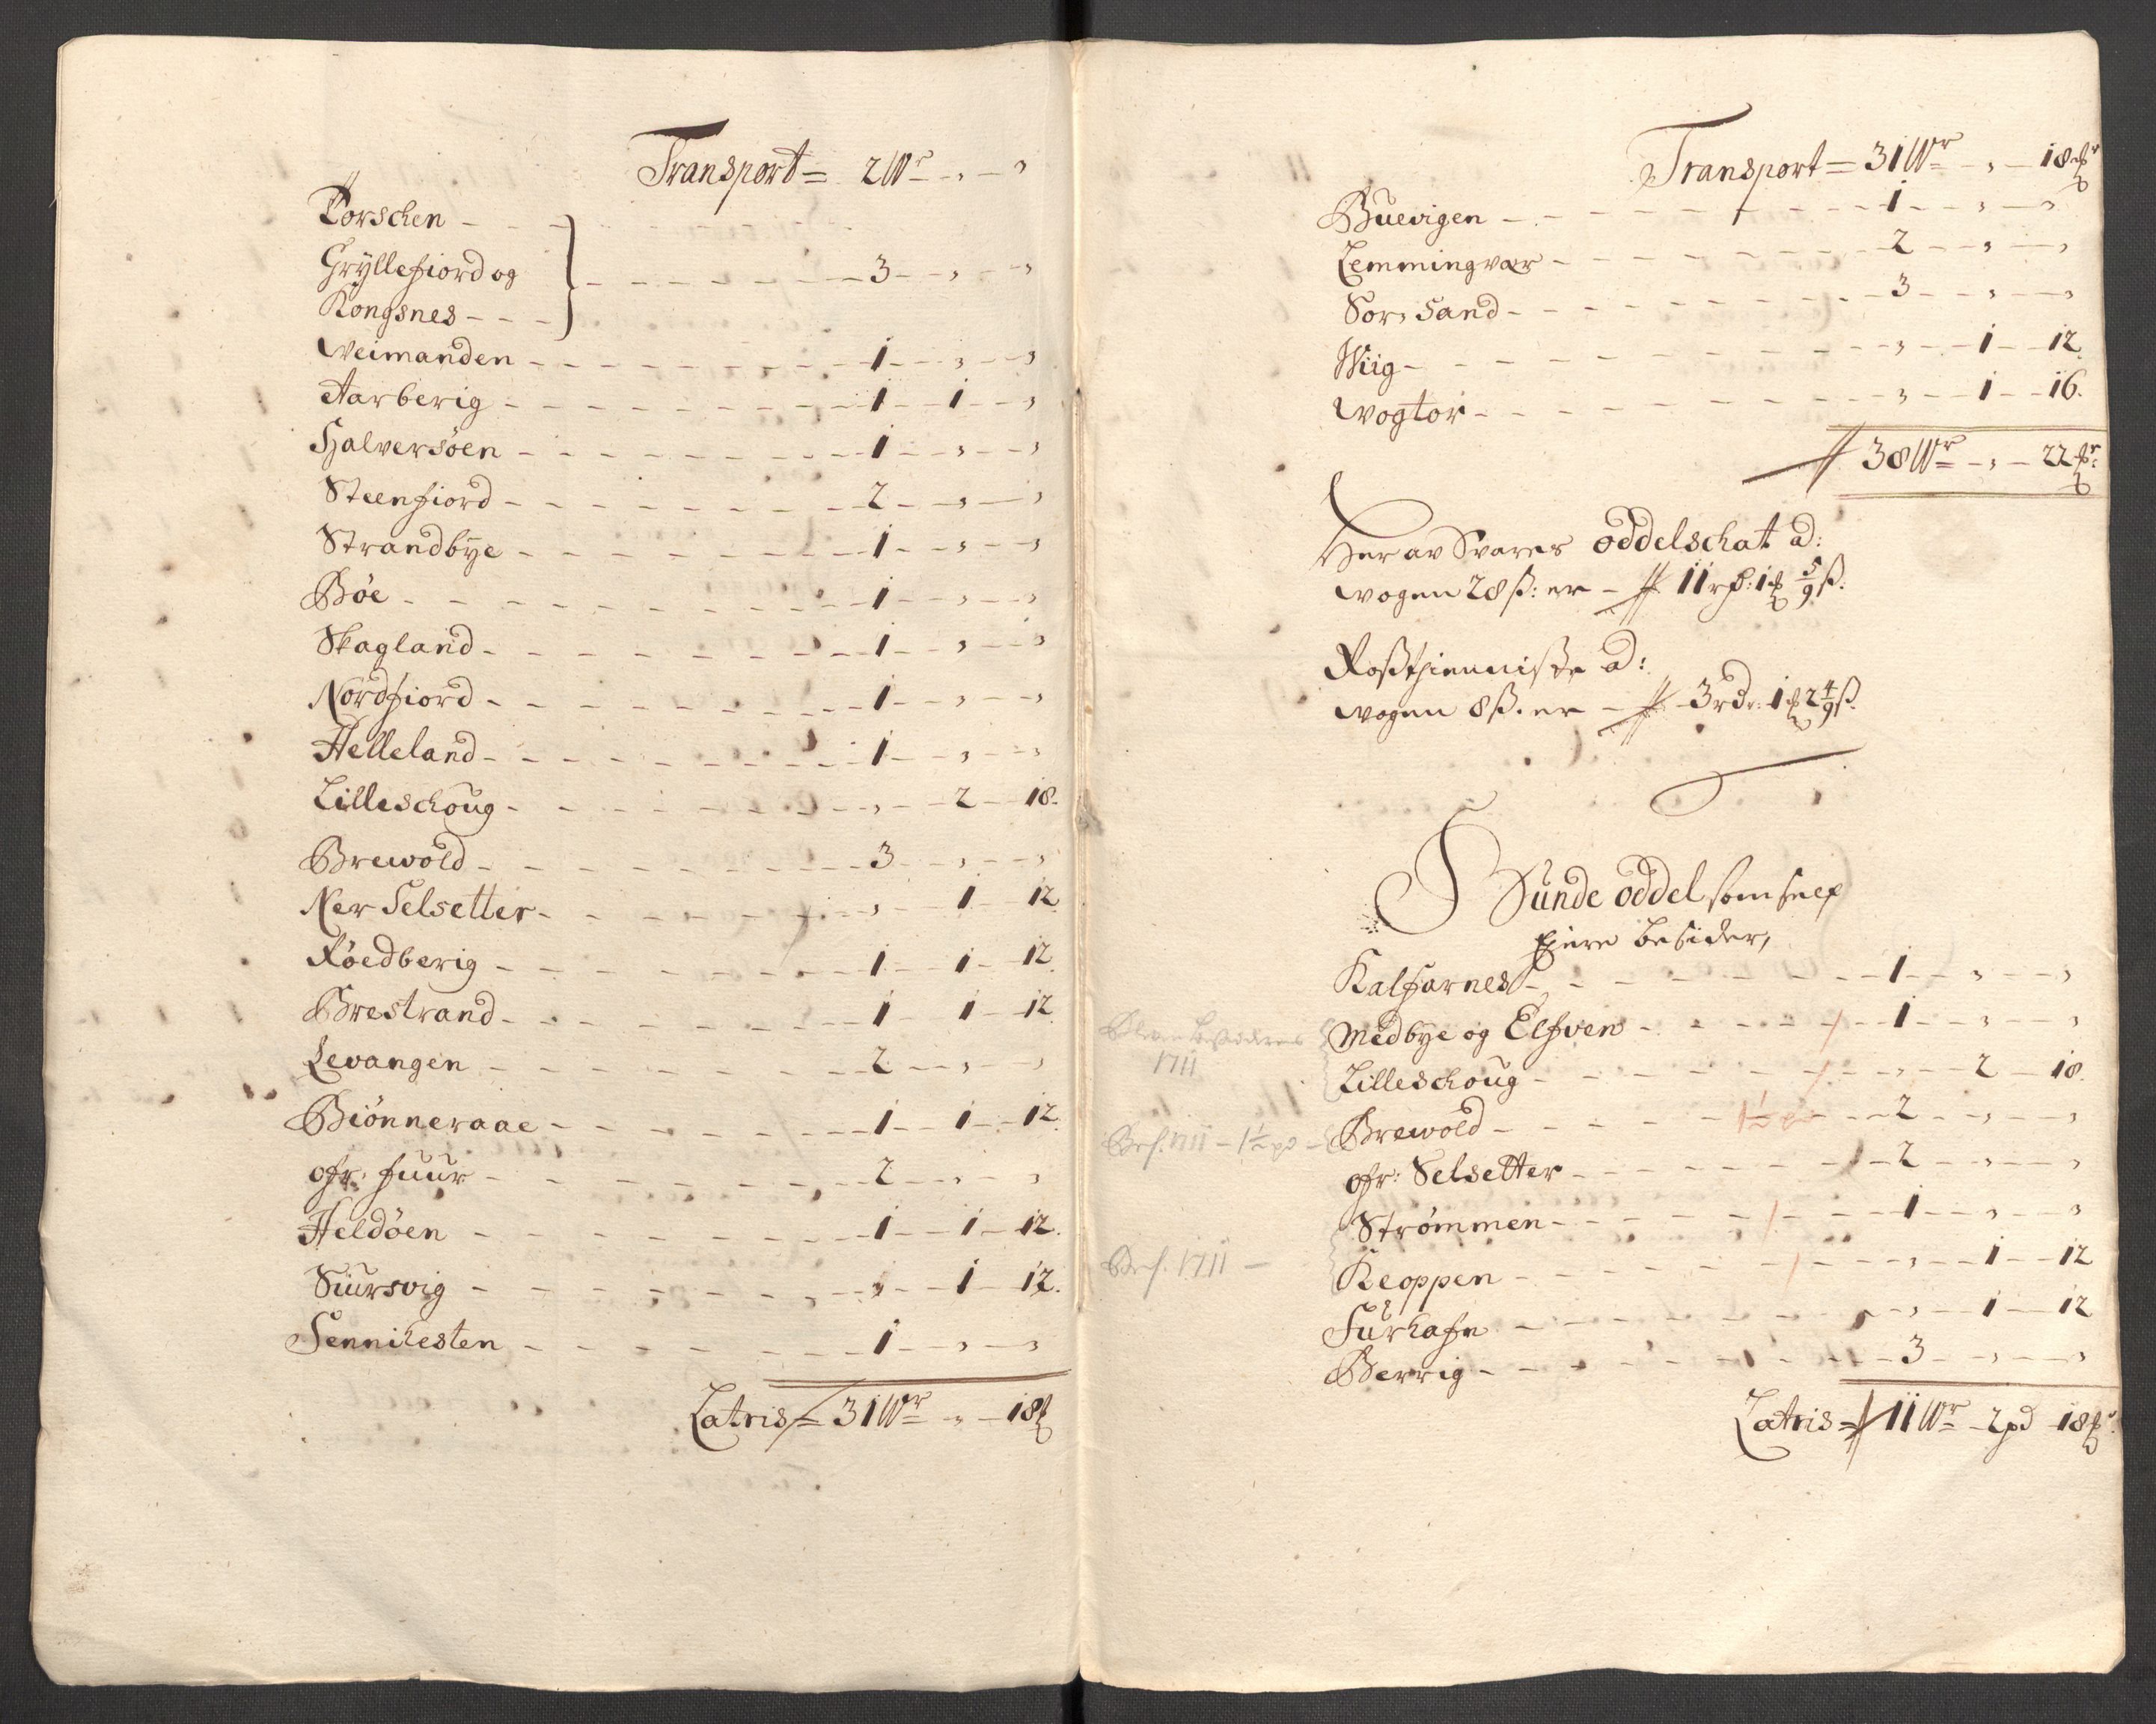 Transport = 2 Wr - , - ,
Torschen - - -
Gryllefiord og - - - 3 - , - ,
Kongsnes - - -
Weimanden - - - 1 - , - ,
Aarberig - - - 1 - 1 - ,
Halversöen - - - 1 - , - ,
Steenfiord - - - 2 - , - ,
Strandbÿe - - - 1 - , - ,
Böe - - - 1 - , - ,
Skagland - - - 1 - , - ,
Nordfiord - - - 1 - , - ,
Helleland - - - 1 - , - ,
Lilleschoug - - - , - 2 - 18.
Brewold - - - 3 - , - ,
Ner Selsetter - - - , - 1 - 12
Röedberig - - - 1 - 1 - 12
Brestrand - - - 1 - 1 - 12
Levangen - - - 2 - , - ,
Biönneraae - - - 1 - 1 - 12
ofr: fuur - - - 2 - , - ,
Heldöen - - - 1 - 1 - 12.
Siursvig - - - , - 1 - 12.
Sennikesten - - - 1 - , - ,
Latris = 31 Wr - , - 18 ℔
Transport = 31 Wr - , - 18 ℔r
Buevigen - - - 1 - , - ,
Lemmingvær - - - 2 - , - ,
Sör, Sand - - - 3 - , - ,
Wiig - - - , - 1 - 12
Wogtor - - - , - 1 - 16.
38 Wr - , - 22 ℔r
Her av Svares oddelschat ad:
wogen 28 ß: er - 11 rd: 1 ℔ 5/9 ß.
Rosthienniste ad:
wogen 8 ß. er - 3 rdr: 1 ℔ 2 4/9 ß.
Bunde oddel som self
Eiere besider,
Kalfarnes - - - 1 - , - ,
Medbye og Elfven - - - 1 - , - ,
1711
Lilleschoug - - - , - 2 - 18.
Brewold - - - 1½ pd - 2 - , - ,
Bes. 1711 - 1½ pd -
ofr: Selsetter - - - 2 - , - ,
Strömmen - - - 1 - , - ,
Bes. 1711 -
Keoppen - - - , - 1 - 12
Furhafn - - - , - 1 - 12
Berrig - - - 3 - , - ,
Latris = 11 Wr - 2 pd 18 ℔r